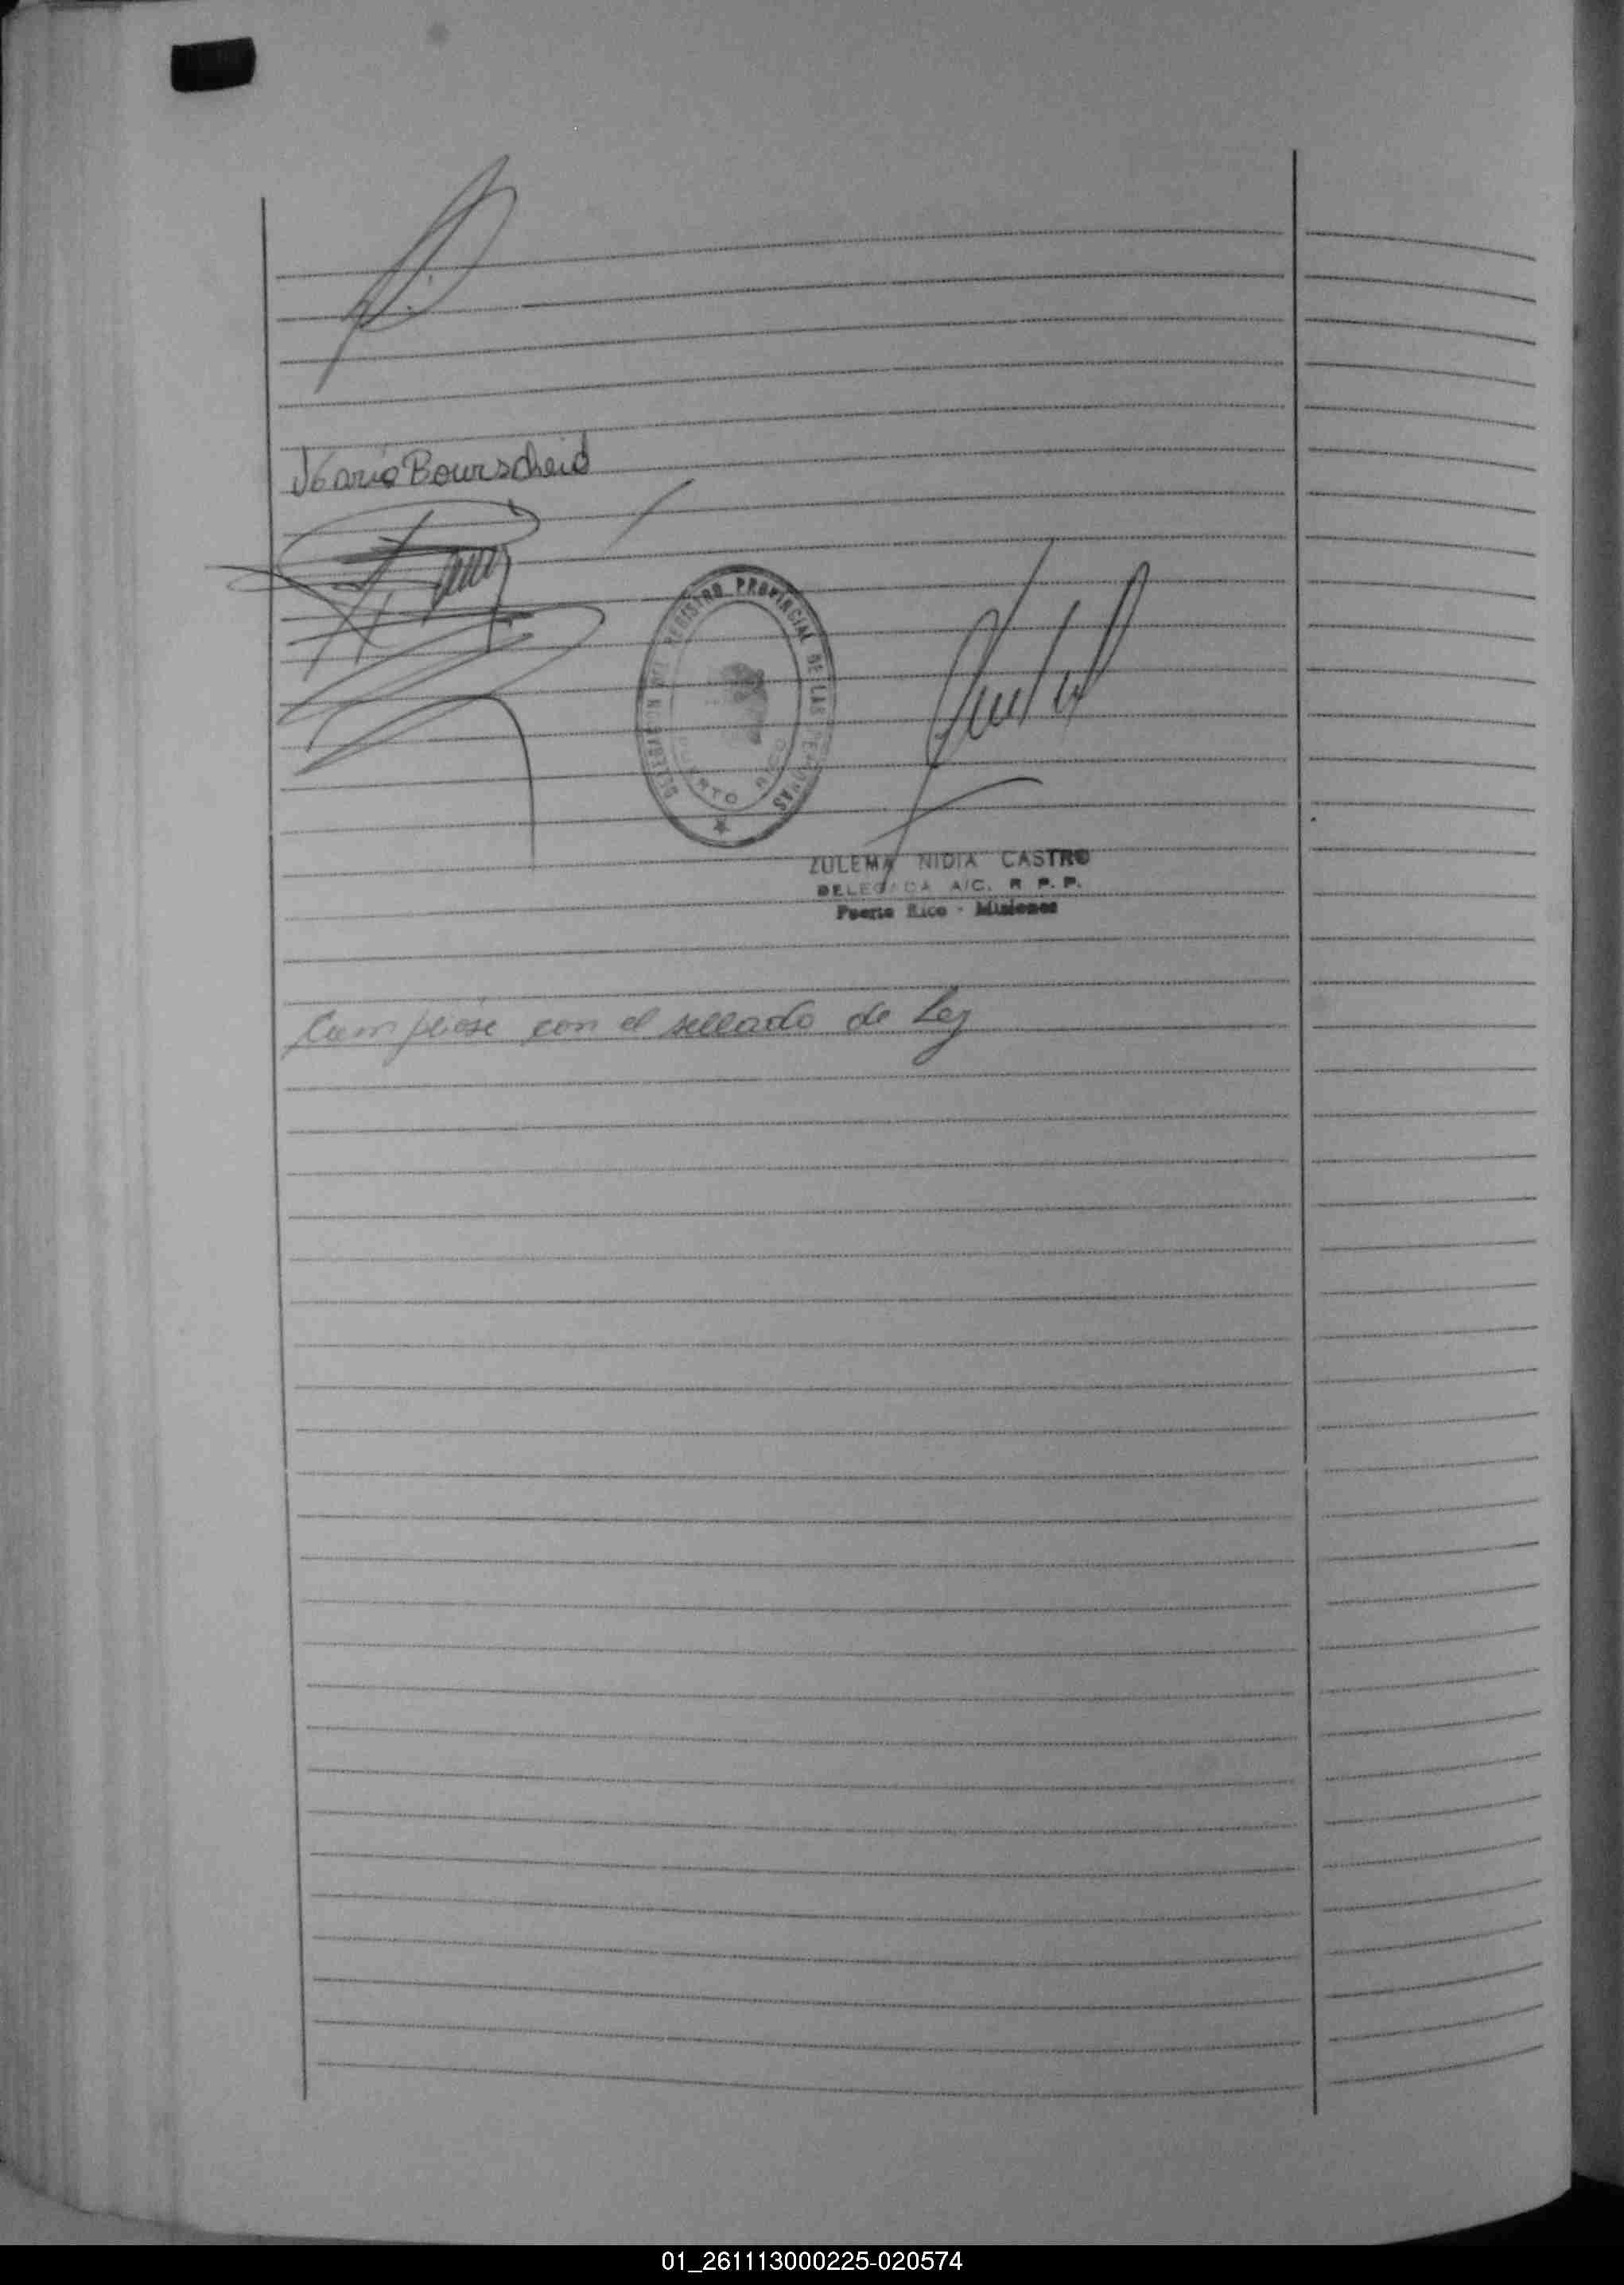 Maria Bourscheid
DELEGACION DEL REGISTRO PROVINCIAL DE LAS PERSONAS
PUERTO RICO
ZULEMA NIDIA CASTRO
DELEGADA A/C. R P. P.
Puerto Rico - Misiones
Cumpliose con el sellado de Ley
01_261113000225-020574